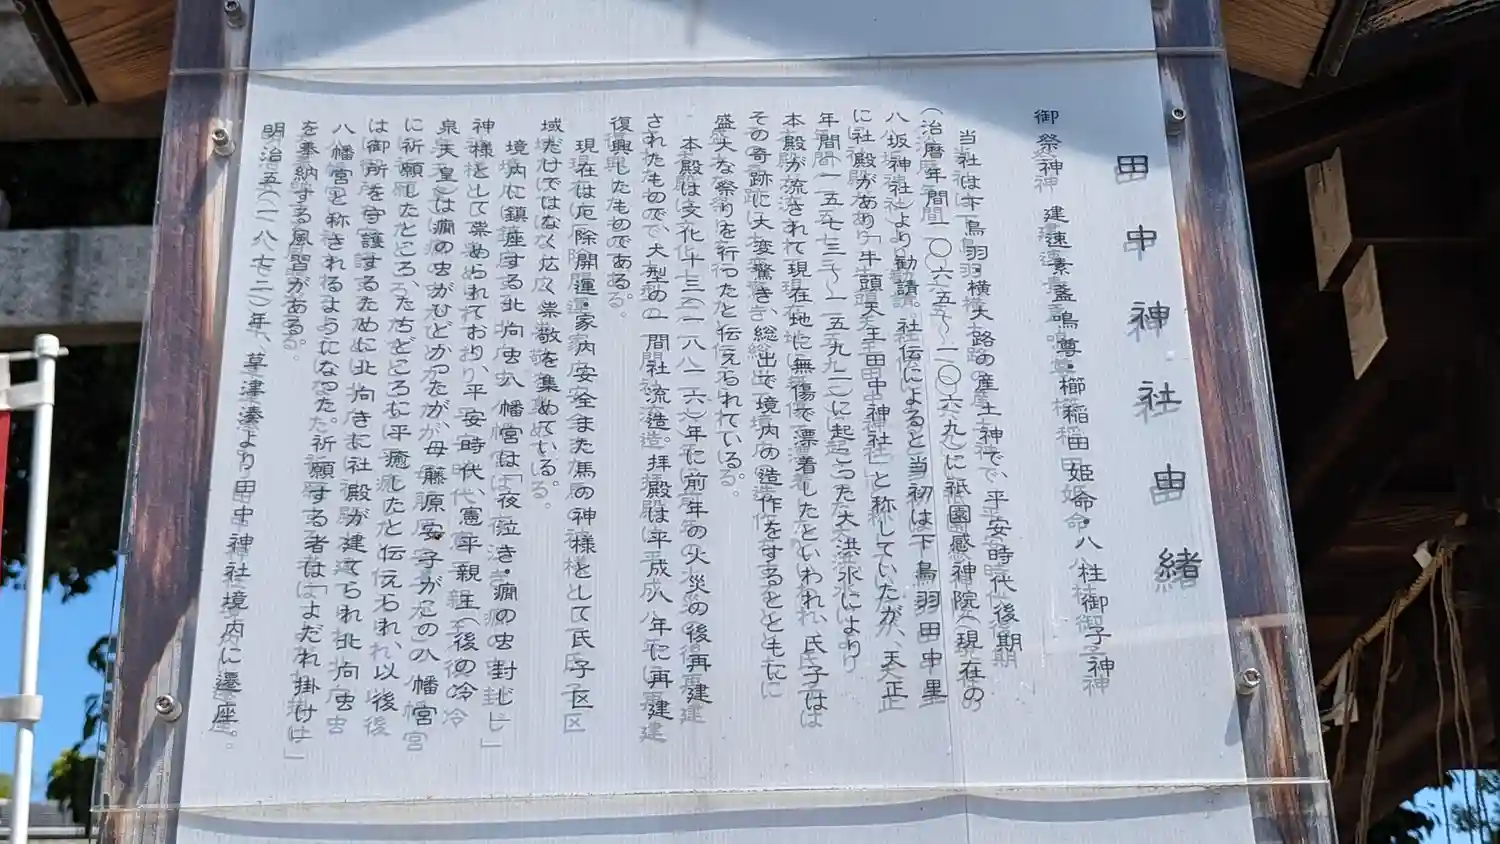 田中神社由緒
御祭神 建速素盞嗚尊・櫛稲田姫命・八柱御子神
当社は下鳥羽横大路の産土神で、平安時代後期
(治暦年間一〇六五〜一〇六九)に祇園感神院(現在の
八坂神社)より勧請。社伝によると当初は下鳥羽田中里
に社殿があり「牛頭天王田中神社」と称していたが、天正
年間(一五七三〜一五九二)に起こった大洪水により
本殿が流されて現在地に無傷で漂着したといわれ、氏子は
その奇跡に大変驚き、総出で境内の造作をするとともに
盛大な祭りを行ったと伝えられている。
本殿は文化十三(一八一六)年に前年の火災の後再建
されたもので、大型の一間社流造。拝殿は平成八年に再建
復興したものである。
現在は厄除開運・家内安全また馬の神様として氏子区
域だけではなく広く崇敬を集めている。
境内に鎮座する北向虫八幡宮は「夜泣き・癇の虫封じ」
神様として崇められており、平安時代、憲平親王(後の冷
泉天皇)は癇の虫がひどかったが、母藤原安子がこの八幡宮
に祈願したところ、たちどころに平癒したと伝えられ、以後
は御所を守護するために北向きに社殿が建てられ北向虫
八幡宮と称されるようになった。祈願する者は「よだれ掛け」
を奉納する風習がある。
明治五(一八七二)年、草津湊より田中神社境内に遷座。